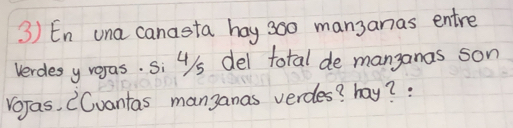 3) En una canasta hay 300 manzanas entre
Verdes y rojas. Si 4/5 del total de manzanas son
rojas. ¿Cuantas manzanas verdes? hay?.